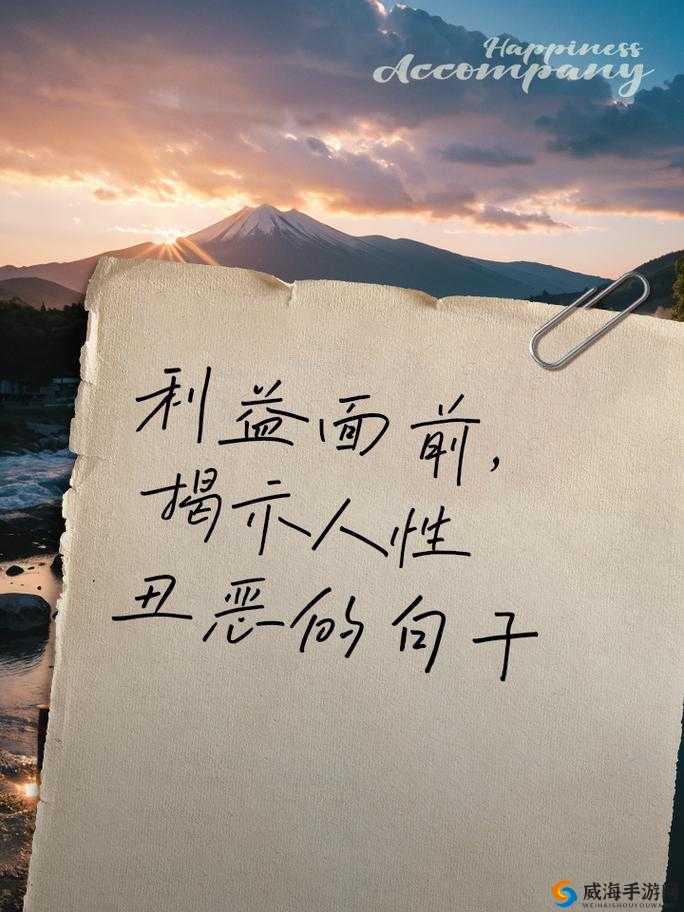 Happiness
Accompany
利益面前，
揭示人性
丑恶的句子
威海手游网
WEIHAISHOUYOUWANG